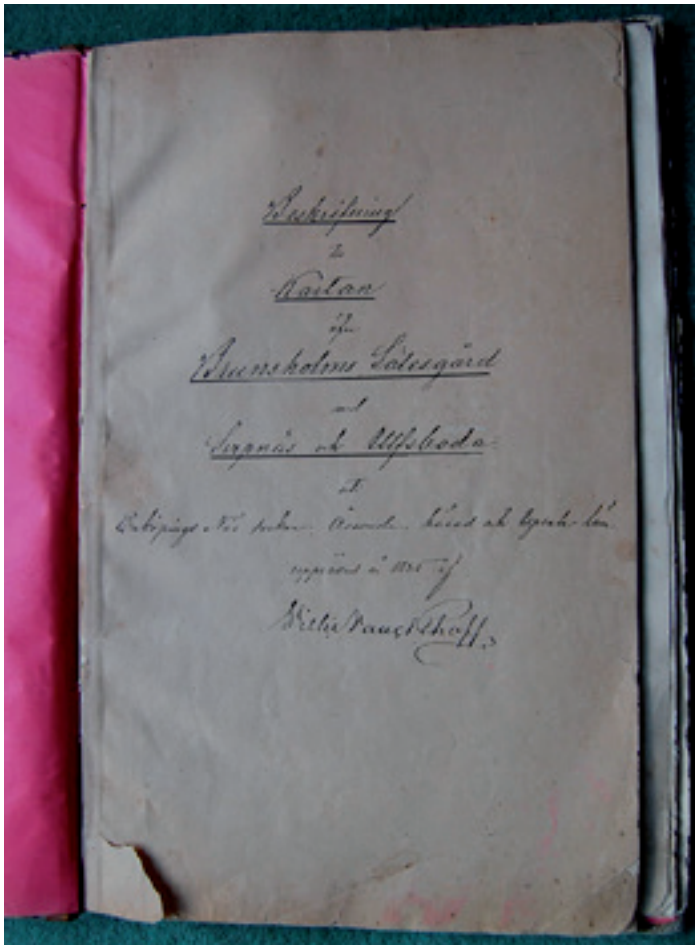 Beskrifning
till
Kartan
öfver
Brunsholms Sätesgård
med
och Ulfsboda
uti
Enköpings Näs socken Åsunda härad och Upsala län
upprättad år af